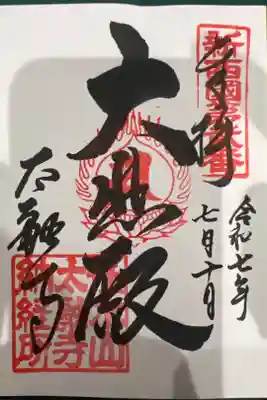 新西國
奉拝
令和七年
七月十日
大悲殿
太融寺
太融寺
納経印